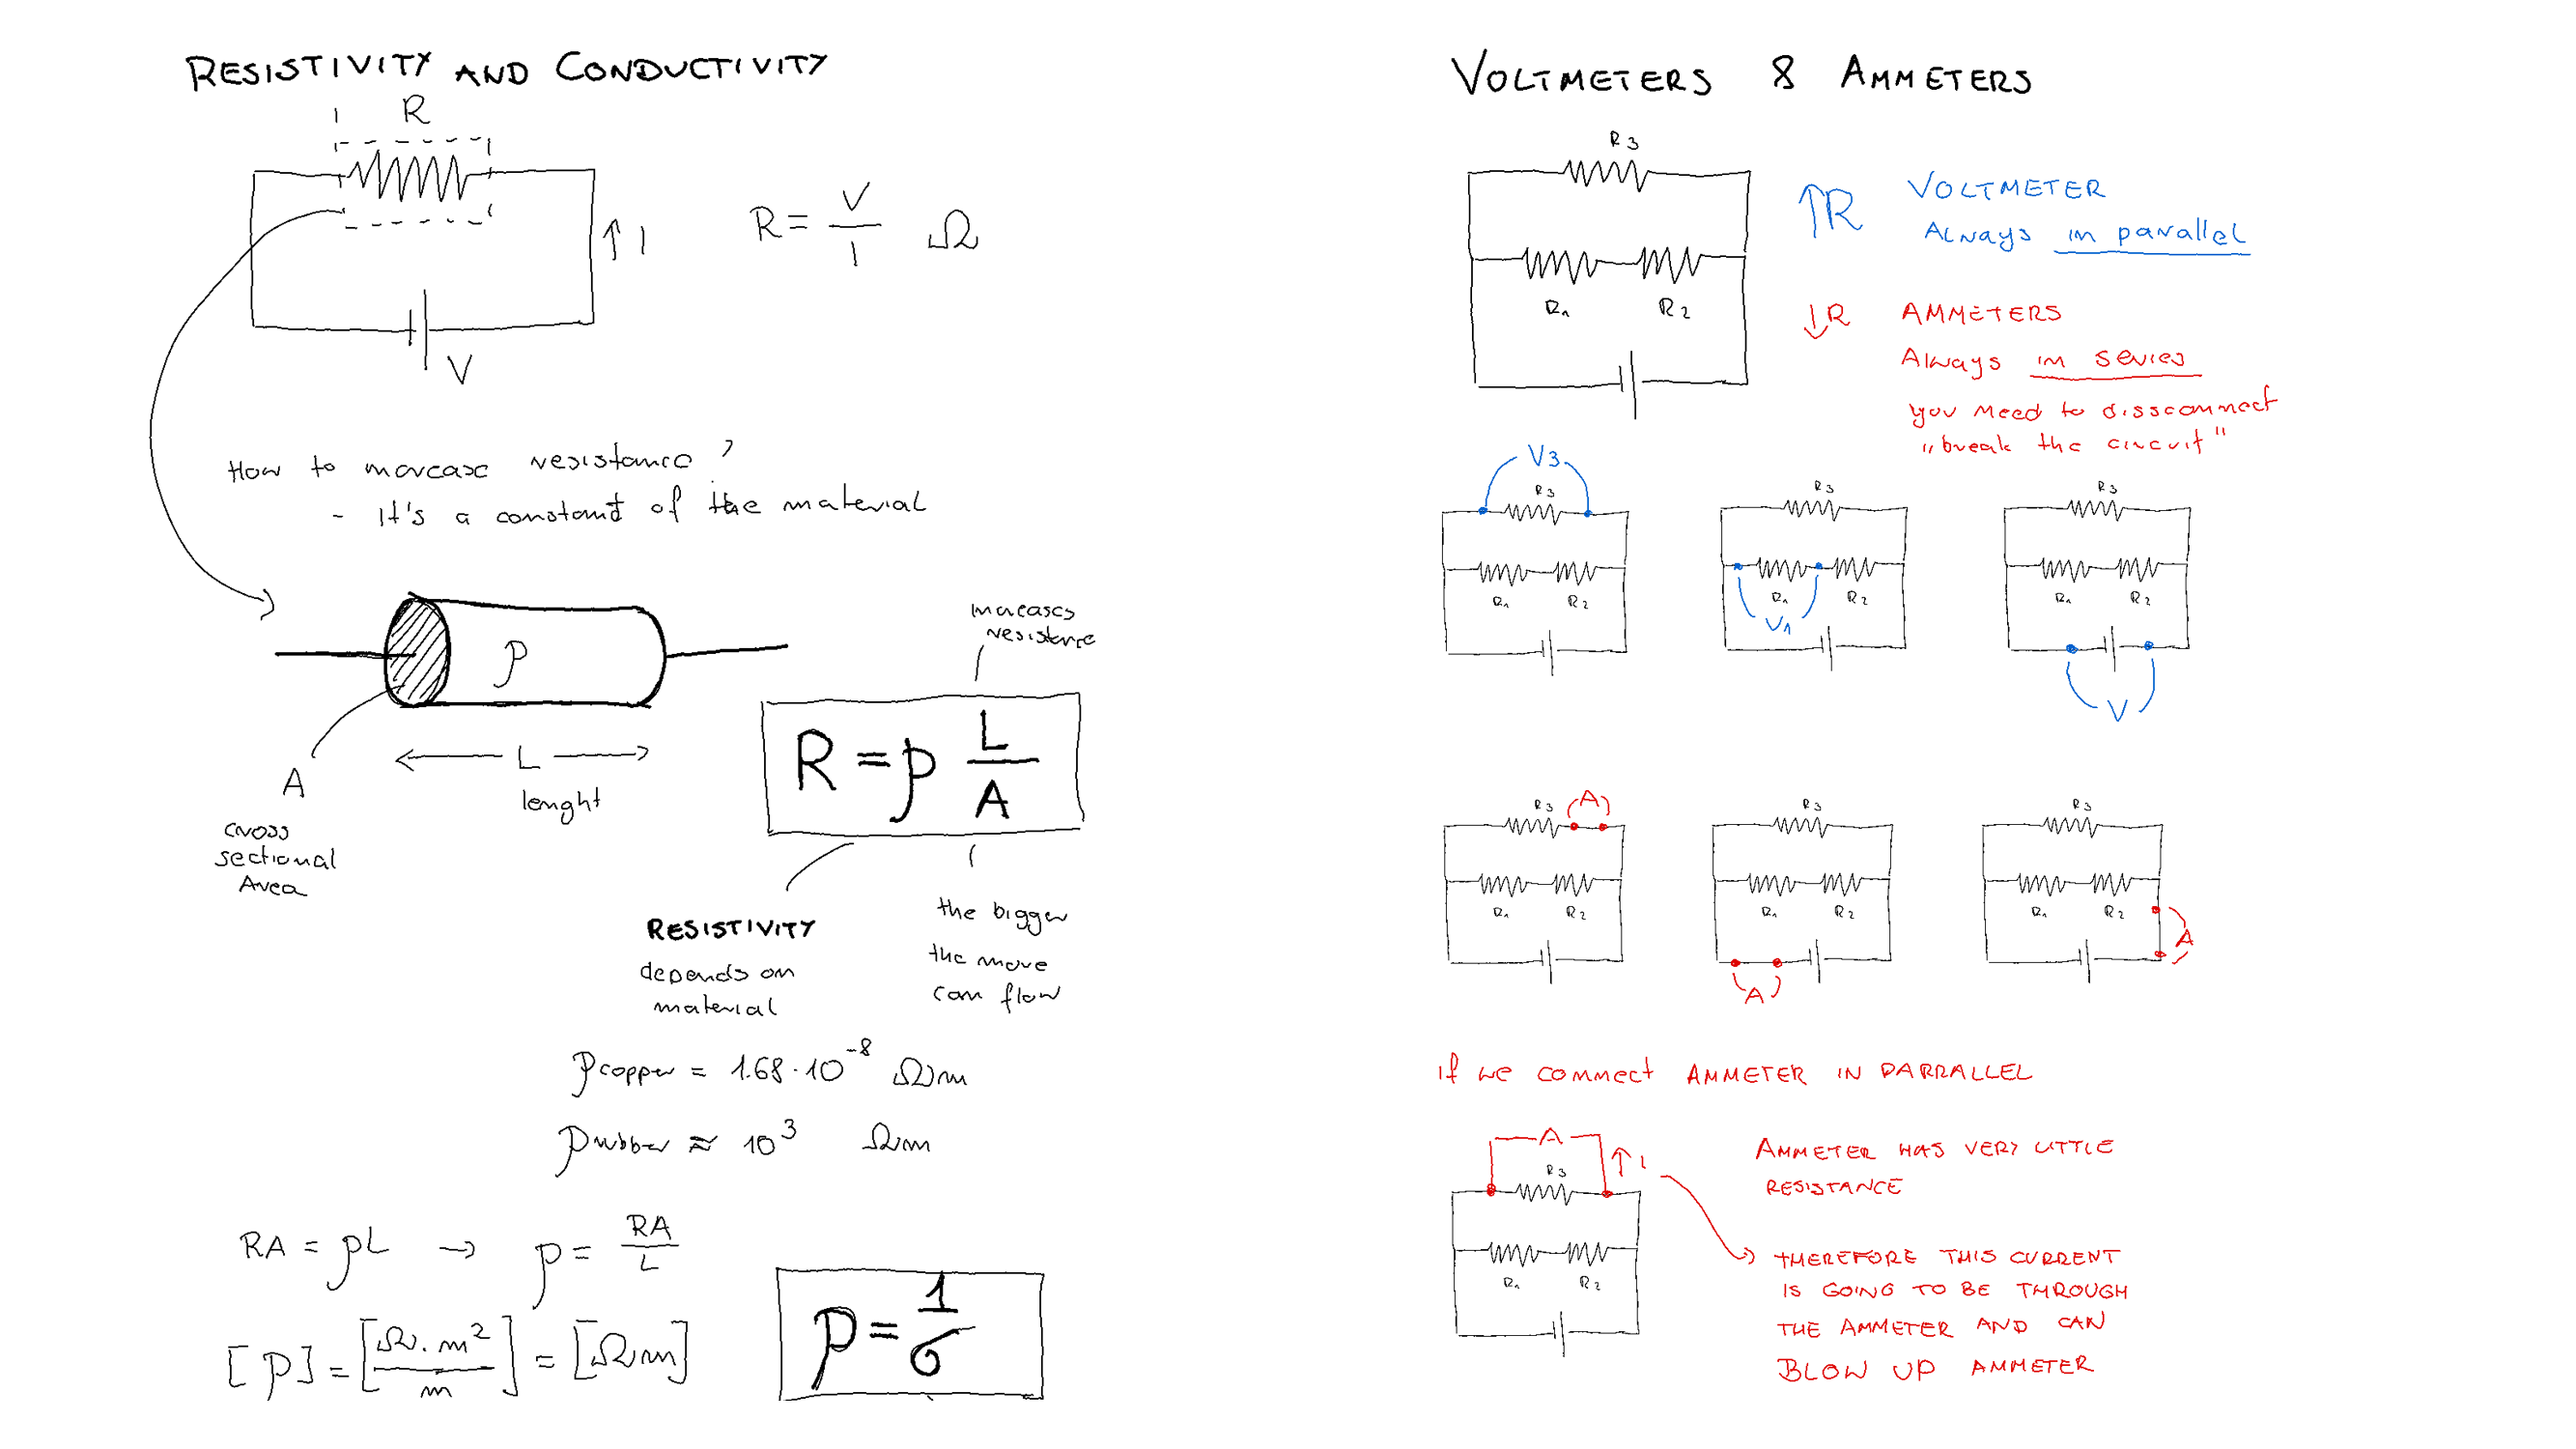 RESISTIVITY AND CONDUCTIVITY
R
R = V / I Ω
↑ I
V
How to increase resistance?
- It's a constant of the material
ρ
A
cross
sectional
Area
L
lenght
increases
resistance
R = ρ L / A
RESISTIVITY
depends on
material
the bigger
the more
can flow
ρcopper = 1.68 · 10⁻⁸ Ωm
ρrubber ≈ 10³ Ωm
RA = ρL → ρ = RA / L
[ρ] = [Ω · m² / m] = [Ωm]
ρ = 1 / σ
VOLTMETERS & AMMETERS
R3
R1 R2
↑R VOLTMETER
Always in parallel
↓R AMMETERS
Always in series
you need to dissconnect
"break the circuit"
V3
R3
R1 R2
R3
R1 R2
V1
R3
R1 R2
V
R3 A
R1 R2
R3
R1 R2
A
R3
R1 R2
A
If we connect AMMETER IN PARRALLEL
A
R3 ↑ I
R1 R2
AMMETER HAS VERY LITTLE
RESISTANCE
THEREFORE THIS CURRENT
IS GOING TO BE THROUGH
THE AMMETER AND CAN
BLOW UP AMMETER